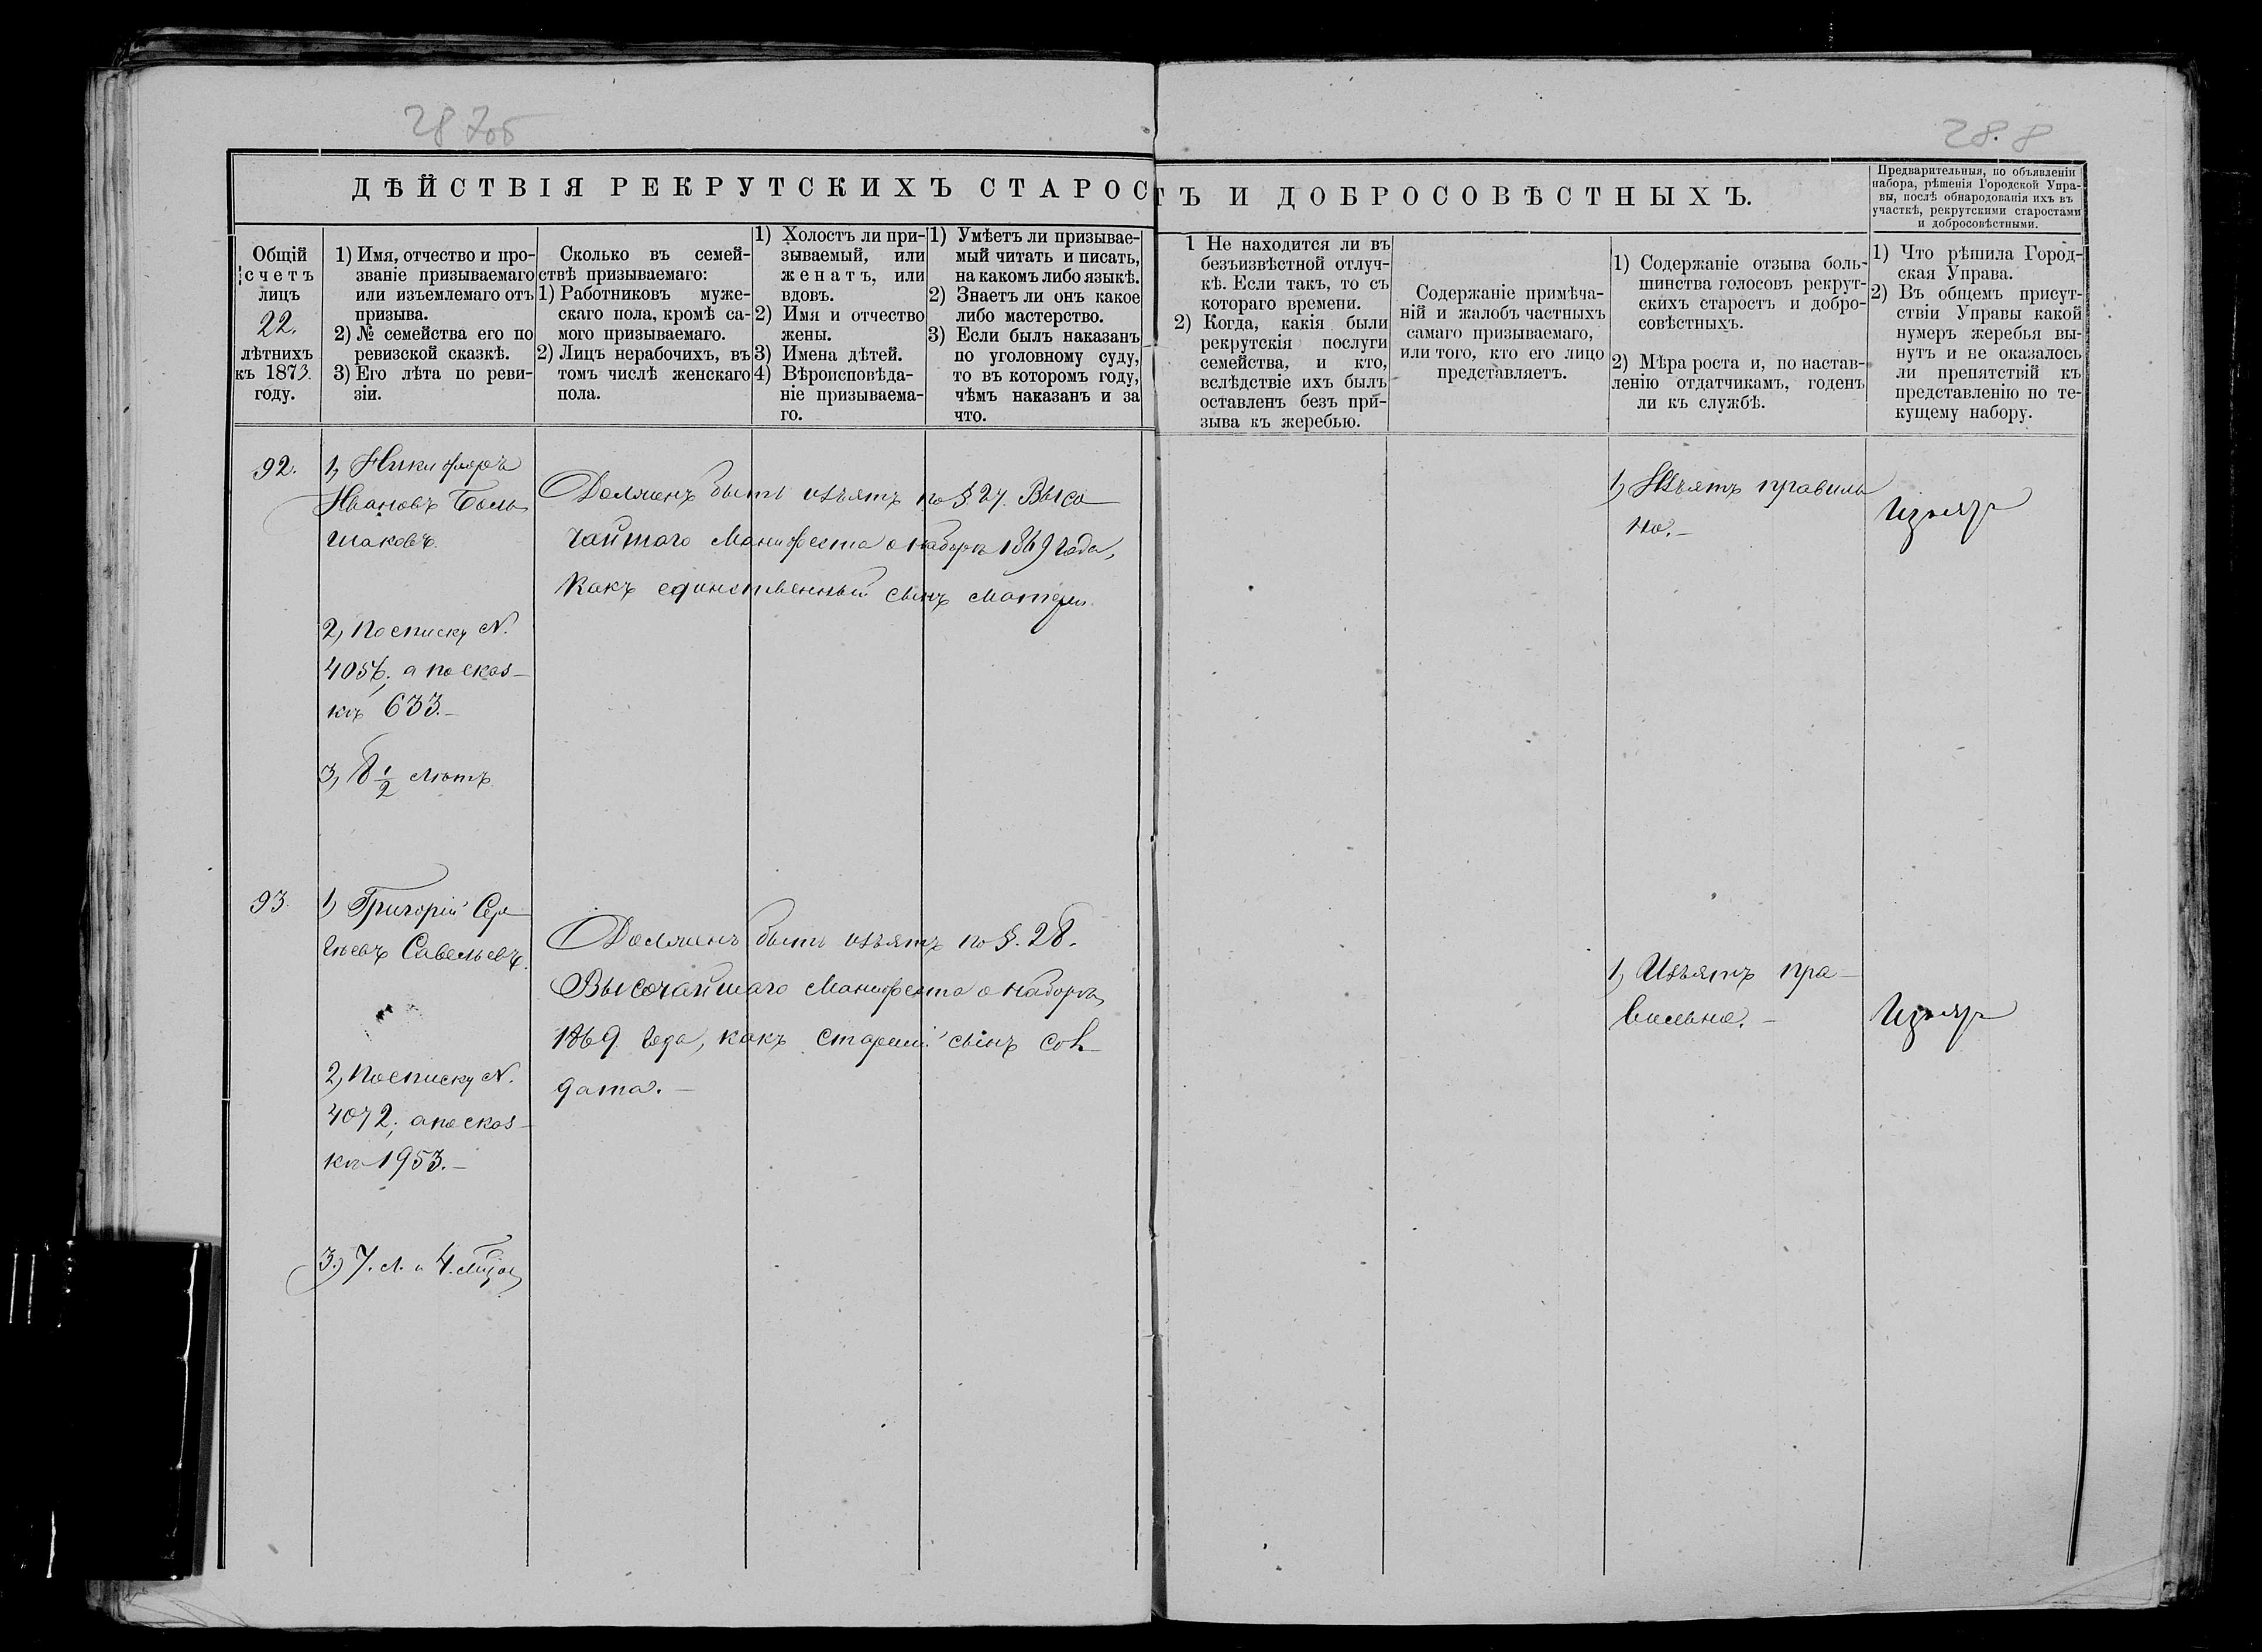 287об
28.8
ДѢЙСТВІЯ РЕКРУТСКИХЪ СТАРОСТЪ И ДОБРОСОВѢСТНЫХЪ.
Предварительныя, по объявленіи
набора, рѣшенія Городской Упра-
вы, послѣ обнародованія ихъ въ
участкѣ, рекрутскими старостами
и добросовѣстными.
Общій
счетъ
лицъ
22.
лѣтнихъ
къ 1873.
году.
1) Имя, отчество и про-
званіе призываемаго
или изъемлемаго отъ
призыва.
2) № семейства его по
ревизской сказкѣ.
3) Его лѣта по реви-
зіи.
Сколько въ семей-
ствѣ призываемаго:
1) Работниковъ муже-
скаго пола, кромѣ са-
мого призываемаго.
2) Лицъ нерабочихъ, въ
томъ числѣ женскаго
пола.
1) Холостъ ли при-
зываемый, или
женатъ, или
вдовъ.
2) Имя и отчество
жены.
3) Имена дѣтей.
4) Вѣроисповѣда-
ніе призываема-
го.
1) Умѣетъ ли призывае-
мый читать и писать,
на какомъ либо языкѣ.
2) Знаетъ ли онъ какое
либо мастерство.
3) Если былъ наказанъ
по уголовному суду,
то въ которомъ году,
чѣмъ наказанъ и за
что.
1 Не находится ли въ
безъизвѣстной отлуч-
кѣ. Если такъ, то съ
котораго времени.
2) Когда, какія были
рекрутскія послуги
семейства, и кто,
вслѣдствіе ихъ былъ
оставленъ безъ при-
зыва къ жеребью.
Содержаніе примѣча-
ній и жалобъ частныхъ
самаго призываемаго,
или того, кто его лицо
представляетъ.
1) Содержаніе отзыва боль-
шинства голосовъ рекрут-
скихъ старостъ и добро-
совѣстныхъ.
2) Мѣра роста и, по настав-
ленію отдатчикамъ, годенъ
ли къ службѣ.
1) Что рѣшила Город-
ская Управа.
2) Въ общемъ присут-
ствіи Управы какой
нумеръ жеребья вы-
нутъ и не оказалось
ли препятствій къ
представленію по те-
кущему набору.
92.
1, Никифоръ
Ивановъ Боль
шаковъ.
2, По списку N.
4056; а по сказ-
кѣ 633.-
3, 8 1/2 лѣтъ
Долженъ быть изъятъ по §. 27. Высо
чайшаго Манифеста о наборѣ 1869 года,
какъ единственный сынъ матери.
1, Изъятъ правиль
но.-
Изъятъ
93.
1, Григорій Сер
гѣевъ Савельевъ.
2, По списку N.
4072; а по сказ-
кѣ 1953.-
3.) 7. л. и 4. мѣсяц
Долженъ быть изъятъ по §. 28.
Высочайшаго Манифеста о наборѣ
1869 года, какъ старшій сынъ сол
дата.-
1, Изъятъ пра-
вильно.-
Изъятъ